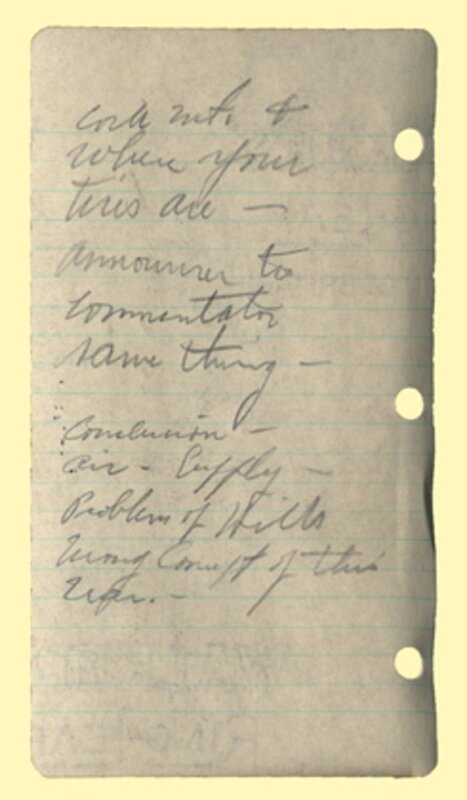 when your
tires are —
announcer to
commentator
same thing —
Conclusion —
air - Supply —
Problem of Hills
Wrong Concept of this
War. —